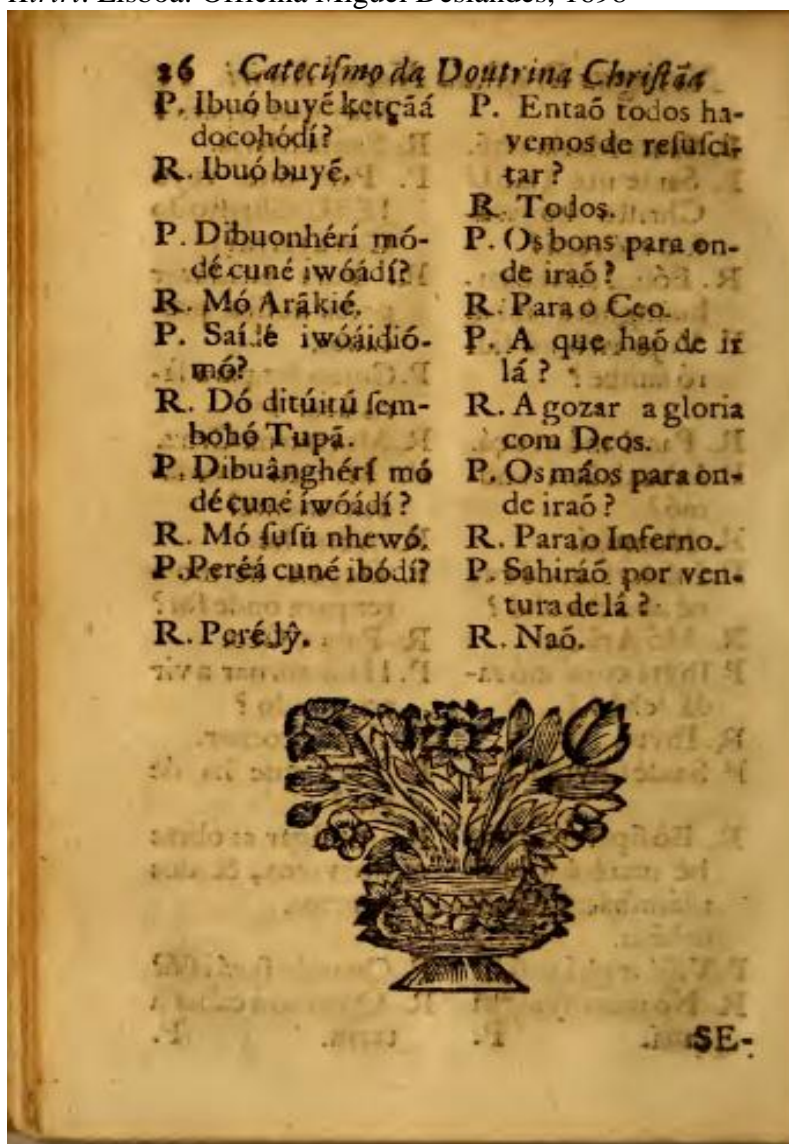 Kiriri. Lisboa: Officina Miguel Deslandes, 1698
26 Catecismo da Doutrina Christãa
P. Ibuó buyé ketçãá
docohódí?
R. Ibuó buyé.
P. Dibuonherí mó-
dé cuné iwóádí?
R. Mó Arãkié.
P. iwóáidió-
mó?
R. Dó ditúitú sem-
bohó Tupã.
P. Dibuângherí mó
dé cuné iwóádí?
R. Mó susú nhewó.
P. Peréá cuné ibódí?
R. Perédŷ.
P. Entaõ todos ha-
vemos de resusci-
tar?
R. Todos.
P. Os bons para on-
de iraõ?
R. Para o Ceo.
P. A que haõ de ir
lá?
R. A gozar a gloria
com Deos.
P. Os máos para on-
de iraõ?
R. Para o Inferno.
P. Sahiráõ por ven-
tura de lá?
R. Naõ.
SE-